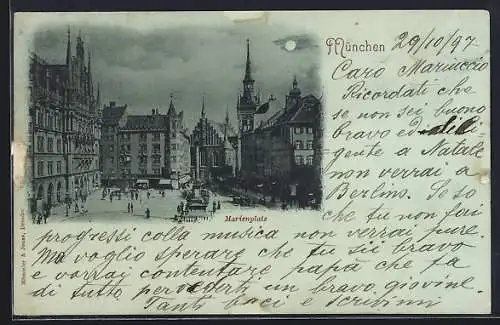 München
29/10/97
Caro Mariuccio
Ricordati che
se non sei buono
bravo ed dili
gente a Natale
non verrai a
Berlino. Se so
che tu non fai
Marienplatz
progressi colla musica non verrai pure.
Ma voglio sperare che tu sii bravo
e vorrai contentare papà che fa
di tutto per un bravo giovine.
Tanti baci e scrivimi